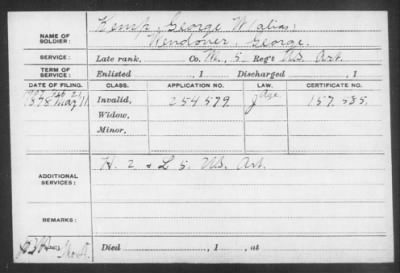 Kemp, George W. (alias)
NAME OF SOLDIER: Wendover, George.
SERVICE: Late rank, Co. M., 5 Reg't U.S. Art.
TERM OF SERVICE: Enlisted , 1 Discharged , 1
DATE OF FILING. CLASS. APPLICATION NO. LAW. CERTIFICATE NO.
1907 Feb 21
1878 May 11 Invalid, 254 579 157 535.
Widow,
Minor,
ADDITIONAL SERVICES: H. 2 & L 5. U.S. Art.
REMARKS:
Died , 1 , at